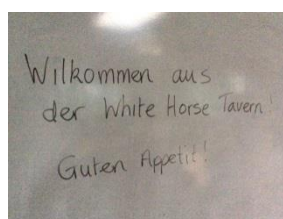 Wilkommen aus
der White Horse Tavern!
Guten Appetit!